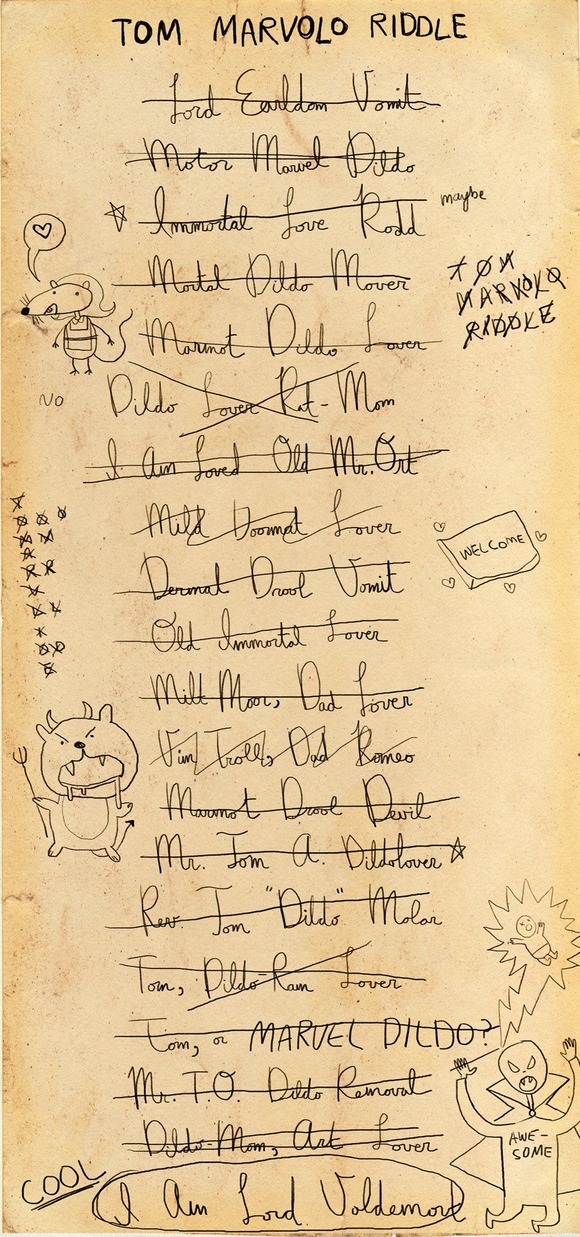 TOM MARVOLO RIDDLE
Lord Earldom Vomit
Motor Marvel Dildo
Immortal Love Rodd
maybe
Mortal Dildo Mover
TOM
MARVOLO
RIDDLE
Marmot Dildo Lover
NO
Dildo Lover Rat-Mom
I Am Loved Old Mr. Ort
Mild Doormat Lover
WELCOME
Dermal Drool Vomit
Old Immortal Lover
Milt Moor, Dad Lover
Vim Trolls, Dad Romeo
Marmot Drool Devil
Mr. Tom A. Dildolover
Rev. Tom "Dildo" Molar
Tom, Dildo-Ram Lover
Tom, or MARVEL DILDO?
Mr. T.O. Dildo Removal
Dildo-Mom, Art Lover
AWE-
SOME
COOL
I Am Lord Voldemort